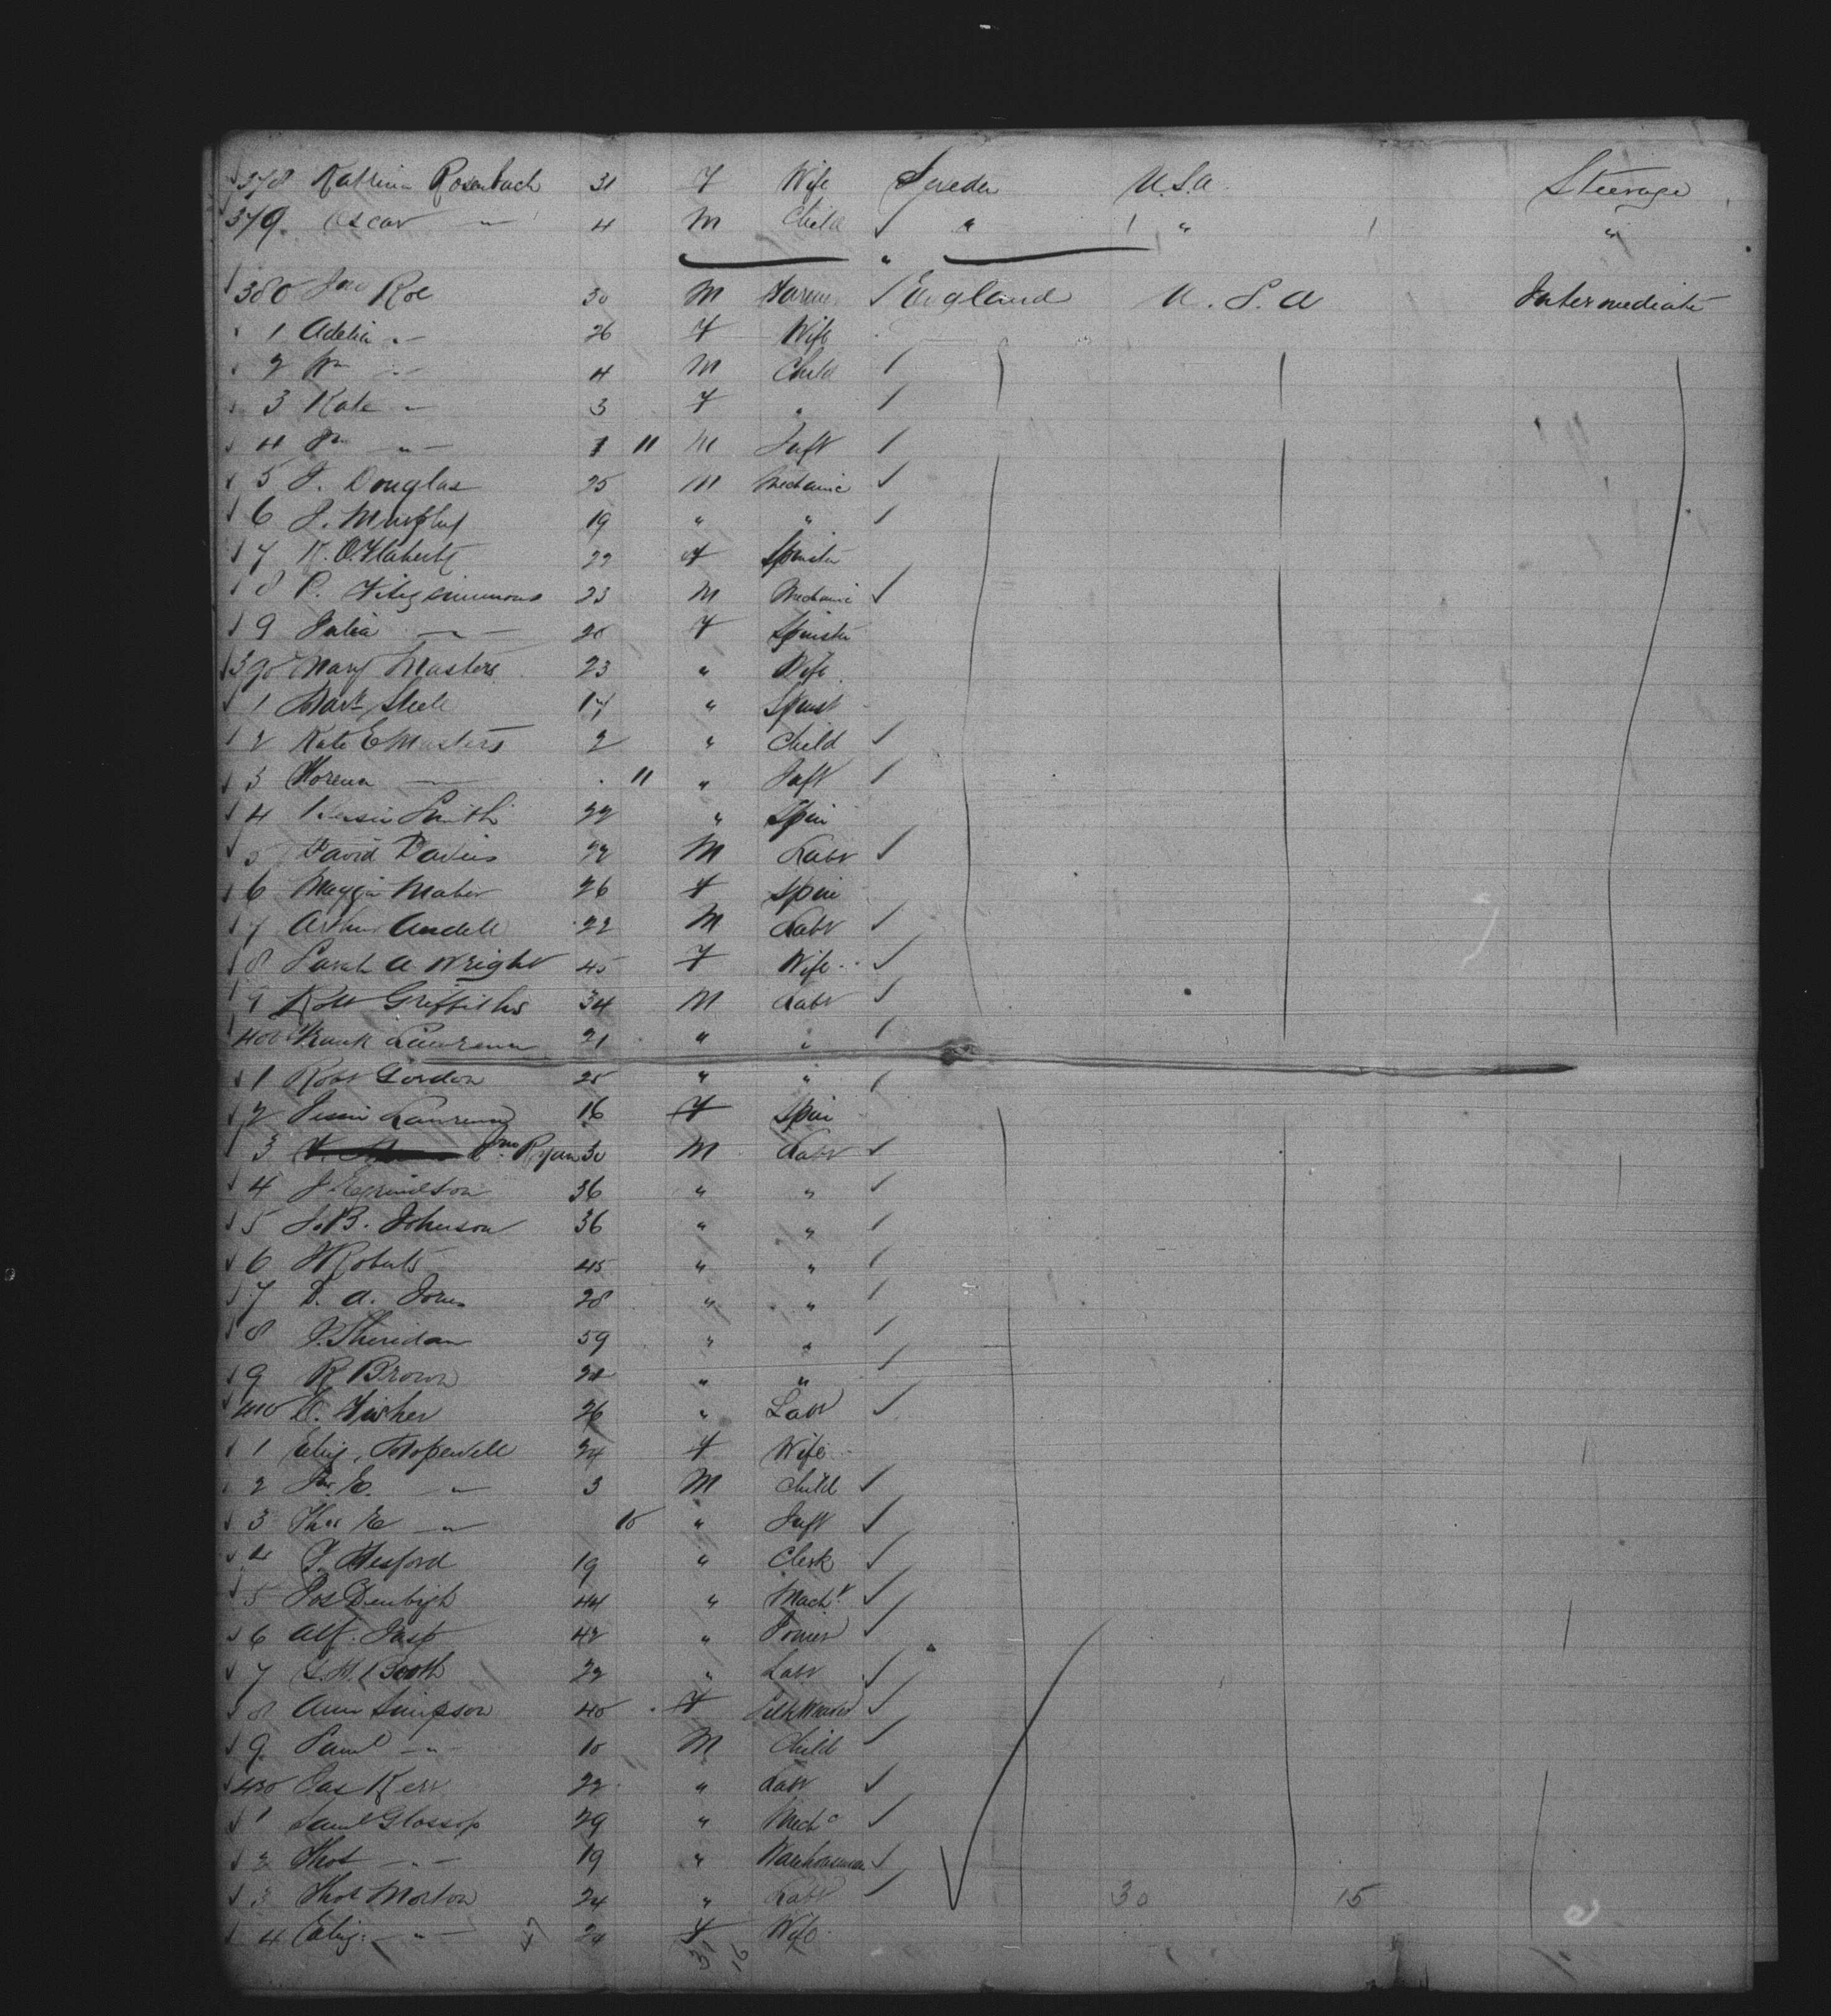 378 Katrina Rosenbach 31 F Wife Sweden U.S.A. Steerage
379 Oscar " 4 M Child " " "
380 Jno Roe 30 M Farmer England U.S.A Intermediate
1 Adelia " 26 F Wife
2 Wm " 4 M Child
3 Kate " 3 F "
4 " 11 M Inft
5 J. Douglas 25 M Mechanic
6 J. Murphy 19 " "
7 K. O.Flaherty 22 F Spinster
8 P. Fitzsimmons 23 M Mechanic
9 Julia " 20 F Spinster
390 Mary Masters 23 " Wife
1 Steele 17 " Spinst
2 Kate E Masters 2 " Child
3 " 11 " Inft
4 Smith 22 " Spin
5 David Davies 22 M Labr
6 Maggie Maher 26 F Spin
7 Arthur 22 M Labr
8 Sarah A Wright 45 F Wife
9 Robt Griffiths 34 M Labr
400 Frank Lawrence 21 " "
1 Robt Gordon 25 " "
2 Jessie Lawrence 16 F Spin
3 Jno Ryan 30 M Labr
4 36 " "
5 J.B. Johnson 36 " "
6 Roberts 45 " "
7 D. A. Jones 28 " "
8 J. Sheridan 59 " "
9 R Brown " "
410 Fisher 26 " Labr
1 Eliz. Hopewell 24 F Wife
2 " 3 M Child
3 Thos E " 10 " Inft
4 19 " Clerk
5 Jos Denbigh 44 " Macht
6 Alf. 42 " Joiner
7 Booth 22 " Labr
8 Ann Simpson 40 F Silk Weaver
9 Saml " 10 M Child
420 Jas Kerr 22 " Labr
1 Saml Glossop 29 " Mechc
2 Thos " 19 " Warehouseman
3 Thos Morton 24 " Labr 30 15
4 Eliz. " F Wife